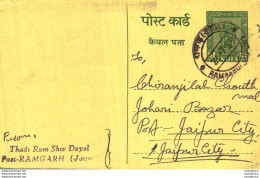 पोस्ट कार्ड
केवल पता
INDIA
To,
Chiranjilal
Johari Bazar
Post- Jaipur City.
Jaipur City.
From,
Thads Ram Shiv Dayal
Post-RAMGARH